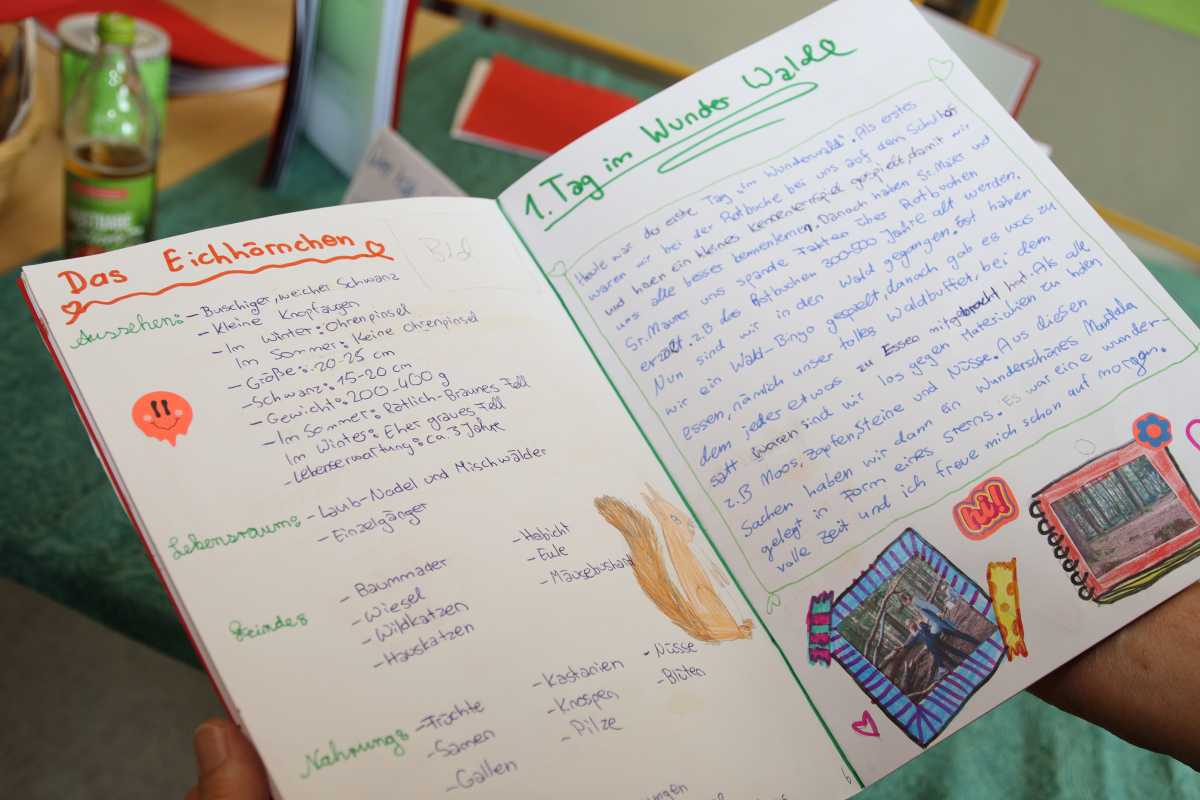 Das Eichhörnchen
Bild
Aussehen: - Buschiger, weicher Schwanz
- Kleine Knopfaugen
- Im Winter: Ohrenpinsel
Im Sommer: Keine Ohrenpinsel
- Größe: 20-25 cm
- Schwanz: 15-20 cm
- Gewicht: 200-400 g
- Im Sommer: Rötlich-Braunes Fell
Im Winter: Eher graues Fell
- Lebenserwartung: ca. 3 Jahre
Lebensraum: - Laub-Nadel und Mischwälder
- Einzelgänger
Feinde:
- Baummader
- Wiesel
- Wildkatzen
- Hauskatzen
- Habicht
- Eule
- Mäusebushard
Nahrung: - Früchte
- Samen
- Gallen
- Kastanien
- Knospen
- Pilze
- Nüsse
- Blüten
1. Tag im Wunder Walde
Heute war du erste Tag im Wunderwald. Als erstes
waren wir bei der Rotbuche bei uns auf den Schulhof
und haen ein kleines kennenlernspiel gespielt, damit wir
uns alle besser kennenlernen. Danach haben Sr. Maier und
Sr. Maurer uns spande Fakten über Rotbuchen
erzält. z.B das Rotbuchen 300-500 Jahre alt werden.
Nun sind wir in den Wald gegangen. Erst haben
wir ein Wald-Bingo gespielt, danach gab es was zu
essen, nämlich unser tolles Waldbuffet, bei dem
dem jeder etwas zu Essen mitgebracht hat. Als alle
satt waren sind wir los gegen Materialien zu holen
z.B Moos, Zapfen, Steine und Nüsse. Aus diesen
Sachen haben wir dann ein Wunderschönes Mandala
gelegt in Form eines Sterns. Es war eine wunder-
volle zeit und ich freue mich schon auf morgen.
hi!